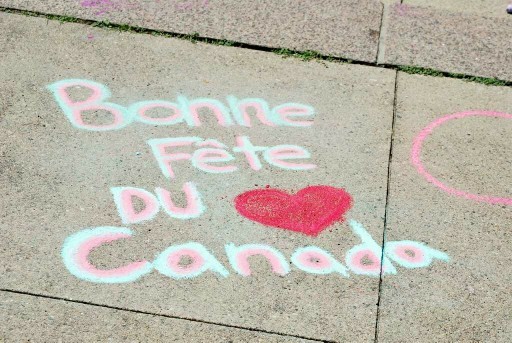 Bonne
Fête
DU
Canada